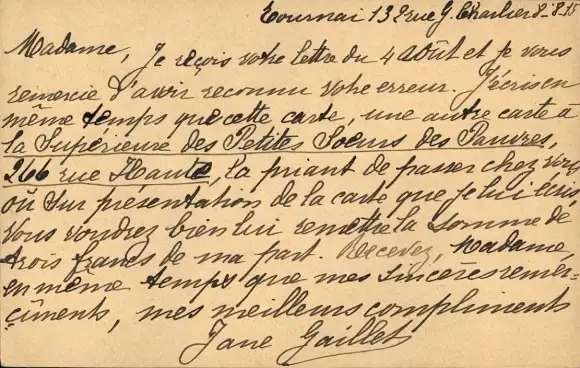 Tournai 13 2 rue G. Charlier 8-8-15
Madame, Je reçois votre lettre du 4 Août et je vous
remercie d'avoir reconnu votre erreur. J'écris en
même temps que cette carte, une autre carte à
la Supérieure des Petites Soeurs des Pauvres,
266 rue Haute, la priant de passer chez vous
où sur présentation de la carte que je lui écris
Vous voudrez bien lui remettre la somme de
trois francs de ma part. Recevez, Madame,
en même temps que mes sincères remer-
çiments, mes meilleurs compliments
Jane Gaillet